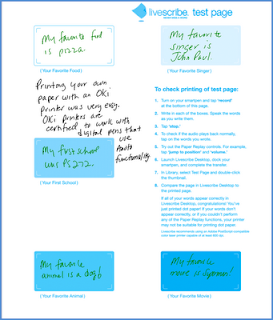 livescribe. test page
My favorite food
is pizza.
(Your Favorite Food)
My favorite
singer is
John Paul.
(Your Favorite Singer)
Printing your own
paper with an Oki
Printer was very easy.
Oki printers are
certified to work with
digital pens that
we
auto
functionality
My first school
was PS272.
(Your First School)
To check printing of test page:
1. Turn on your smartpen and tap "record"
at the bottom of the page.
2. Write in each of the boxes. Speak the words
as you write them.
3. Tap "stop".
4. To check if the audio plays back normally,
tap on the words on the page.
5. Try out the Paper Replay Controls. For example,
tap "jump to position" and "volume".
6. Launch Livescribe Desktop, dock your
smartpen, and complete the transfer.
7. In Library, select Test Page and double-click
the thumbnail.
8. Compare the page in Livescribe Desktop to
the printed page.
If all of your words appear correctly in
Livescribe Desktop, congratulations! You've
just printed dot paper! If your words don't
appear correctly, or if you couldn't perform
any of the Paper Replay functions, your printer
may not be suitable for printing dot paper.
My favorite
animal is a dog!
(Your Favorite Animal)
My favorite
movie is
(Your Favorite Movie)